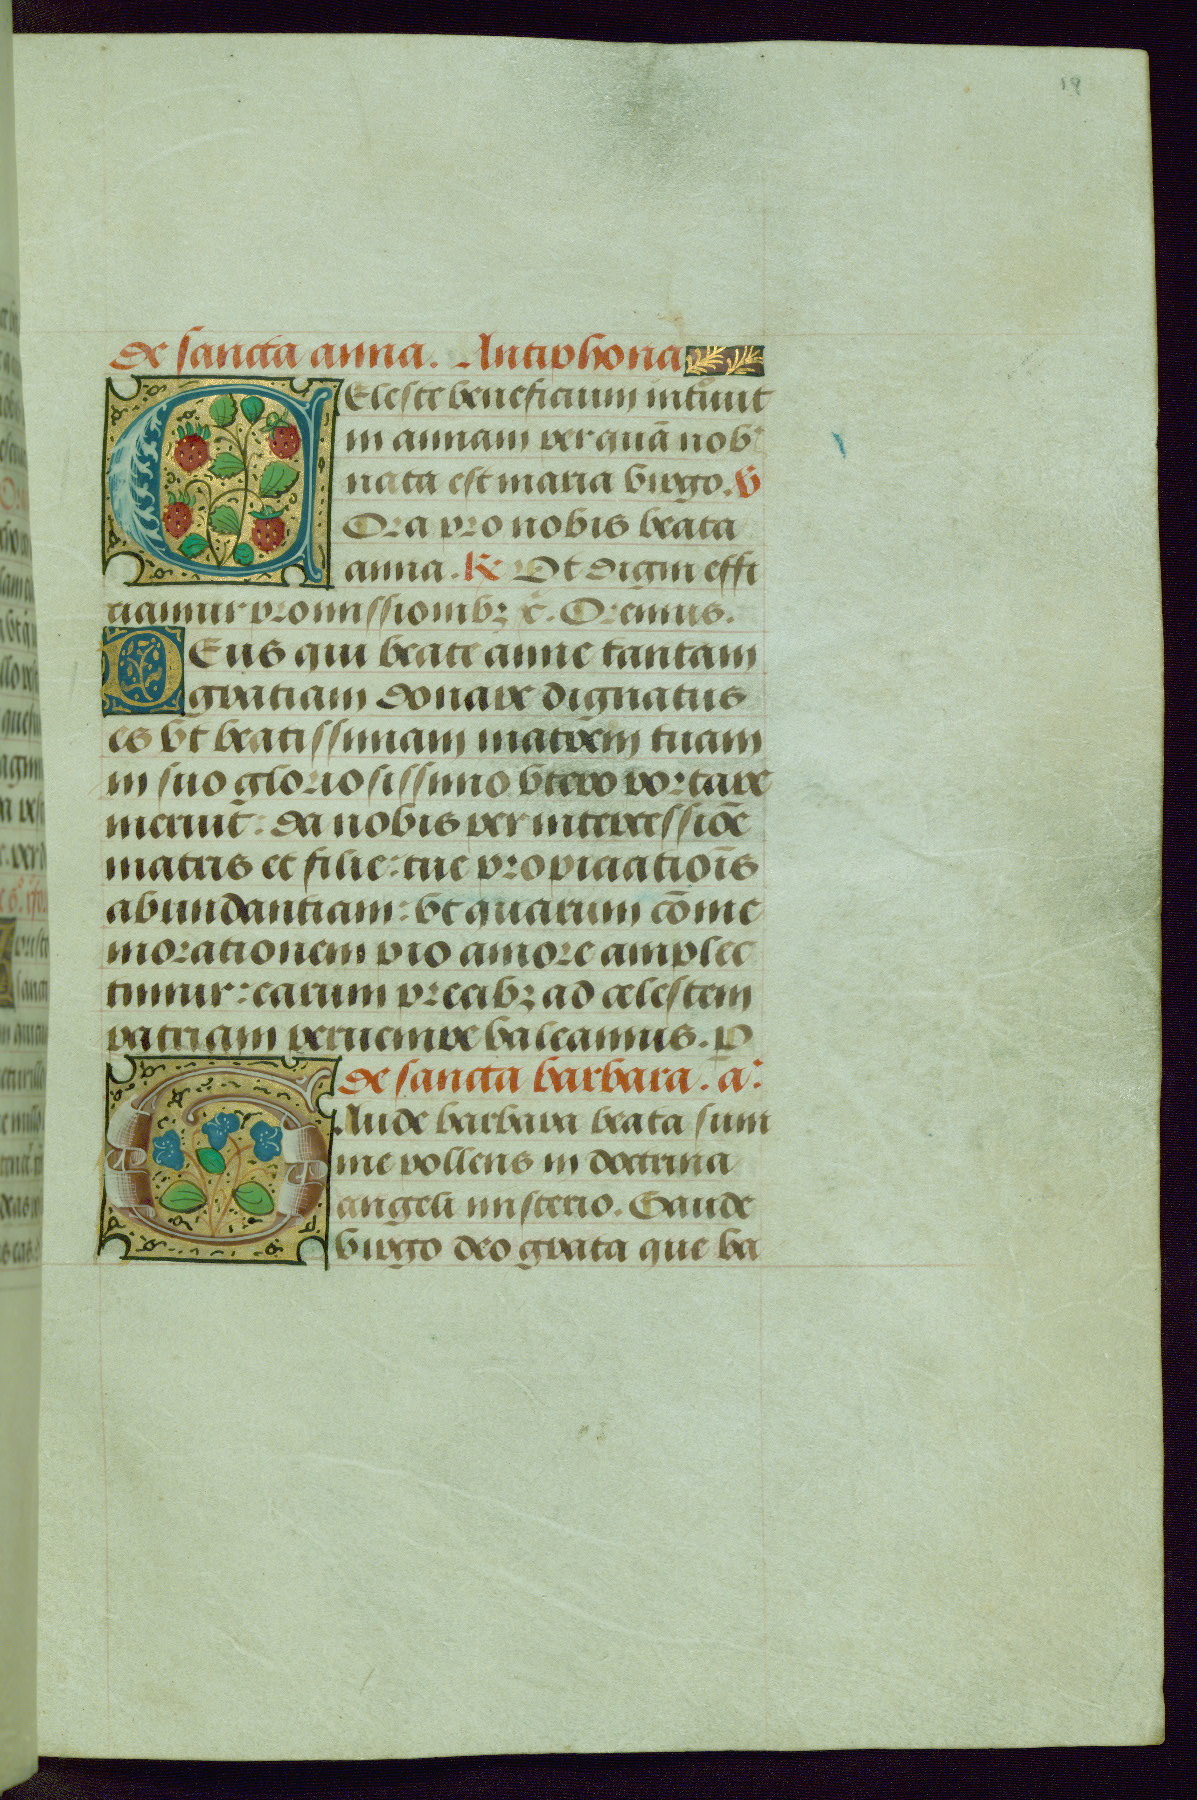 19
De sancta anna. Antiphona
Celeste beneficium intrauit
in annam per quā nobᵒ
nata est maria virgo. V
Ora pro nobis beata
anna. R Vt digni effi
ciamur promissionibꝫ x̄. Oremus.
Deus qui beate anne tantam
gratiam donare dignatus
es vt beatissimam matrem tuam
in suo gloriosissimo vtero portare
meruit: da nobis per intercessiōe
matris et filie: tue propiciatiōis
abundantiam: vt quarum cōme
morationem pio amore amplec
timur: earum precibꝫ ad celestem
patriam peruenire valeamus. P
De sancta barbara. a:
Gaude barbara beata sum
me pollens in doctrina
angeli misterio. Gaude
virgo deo grata que ba